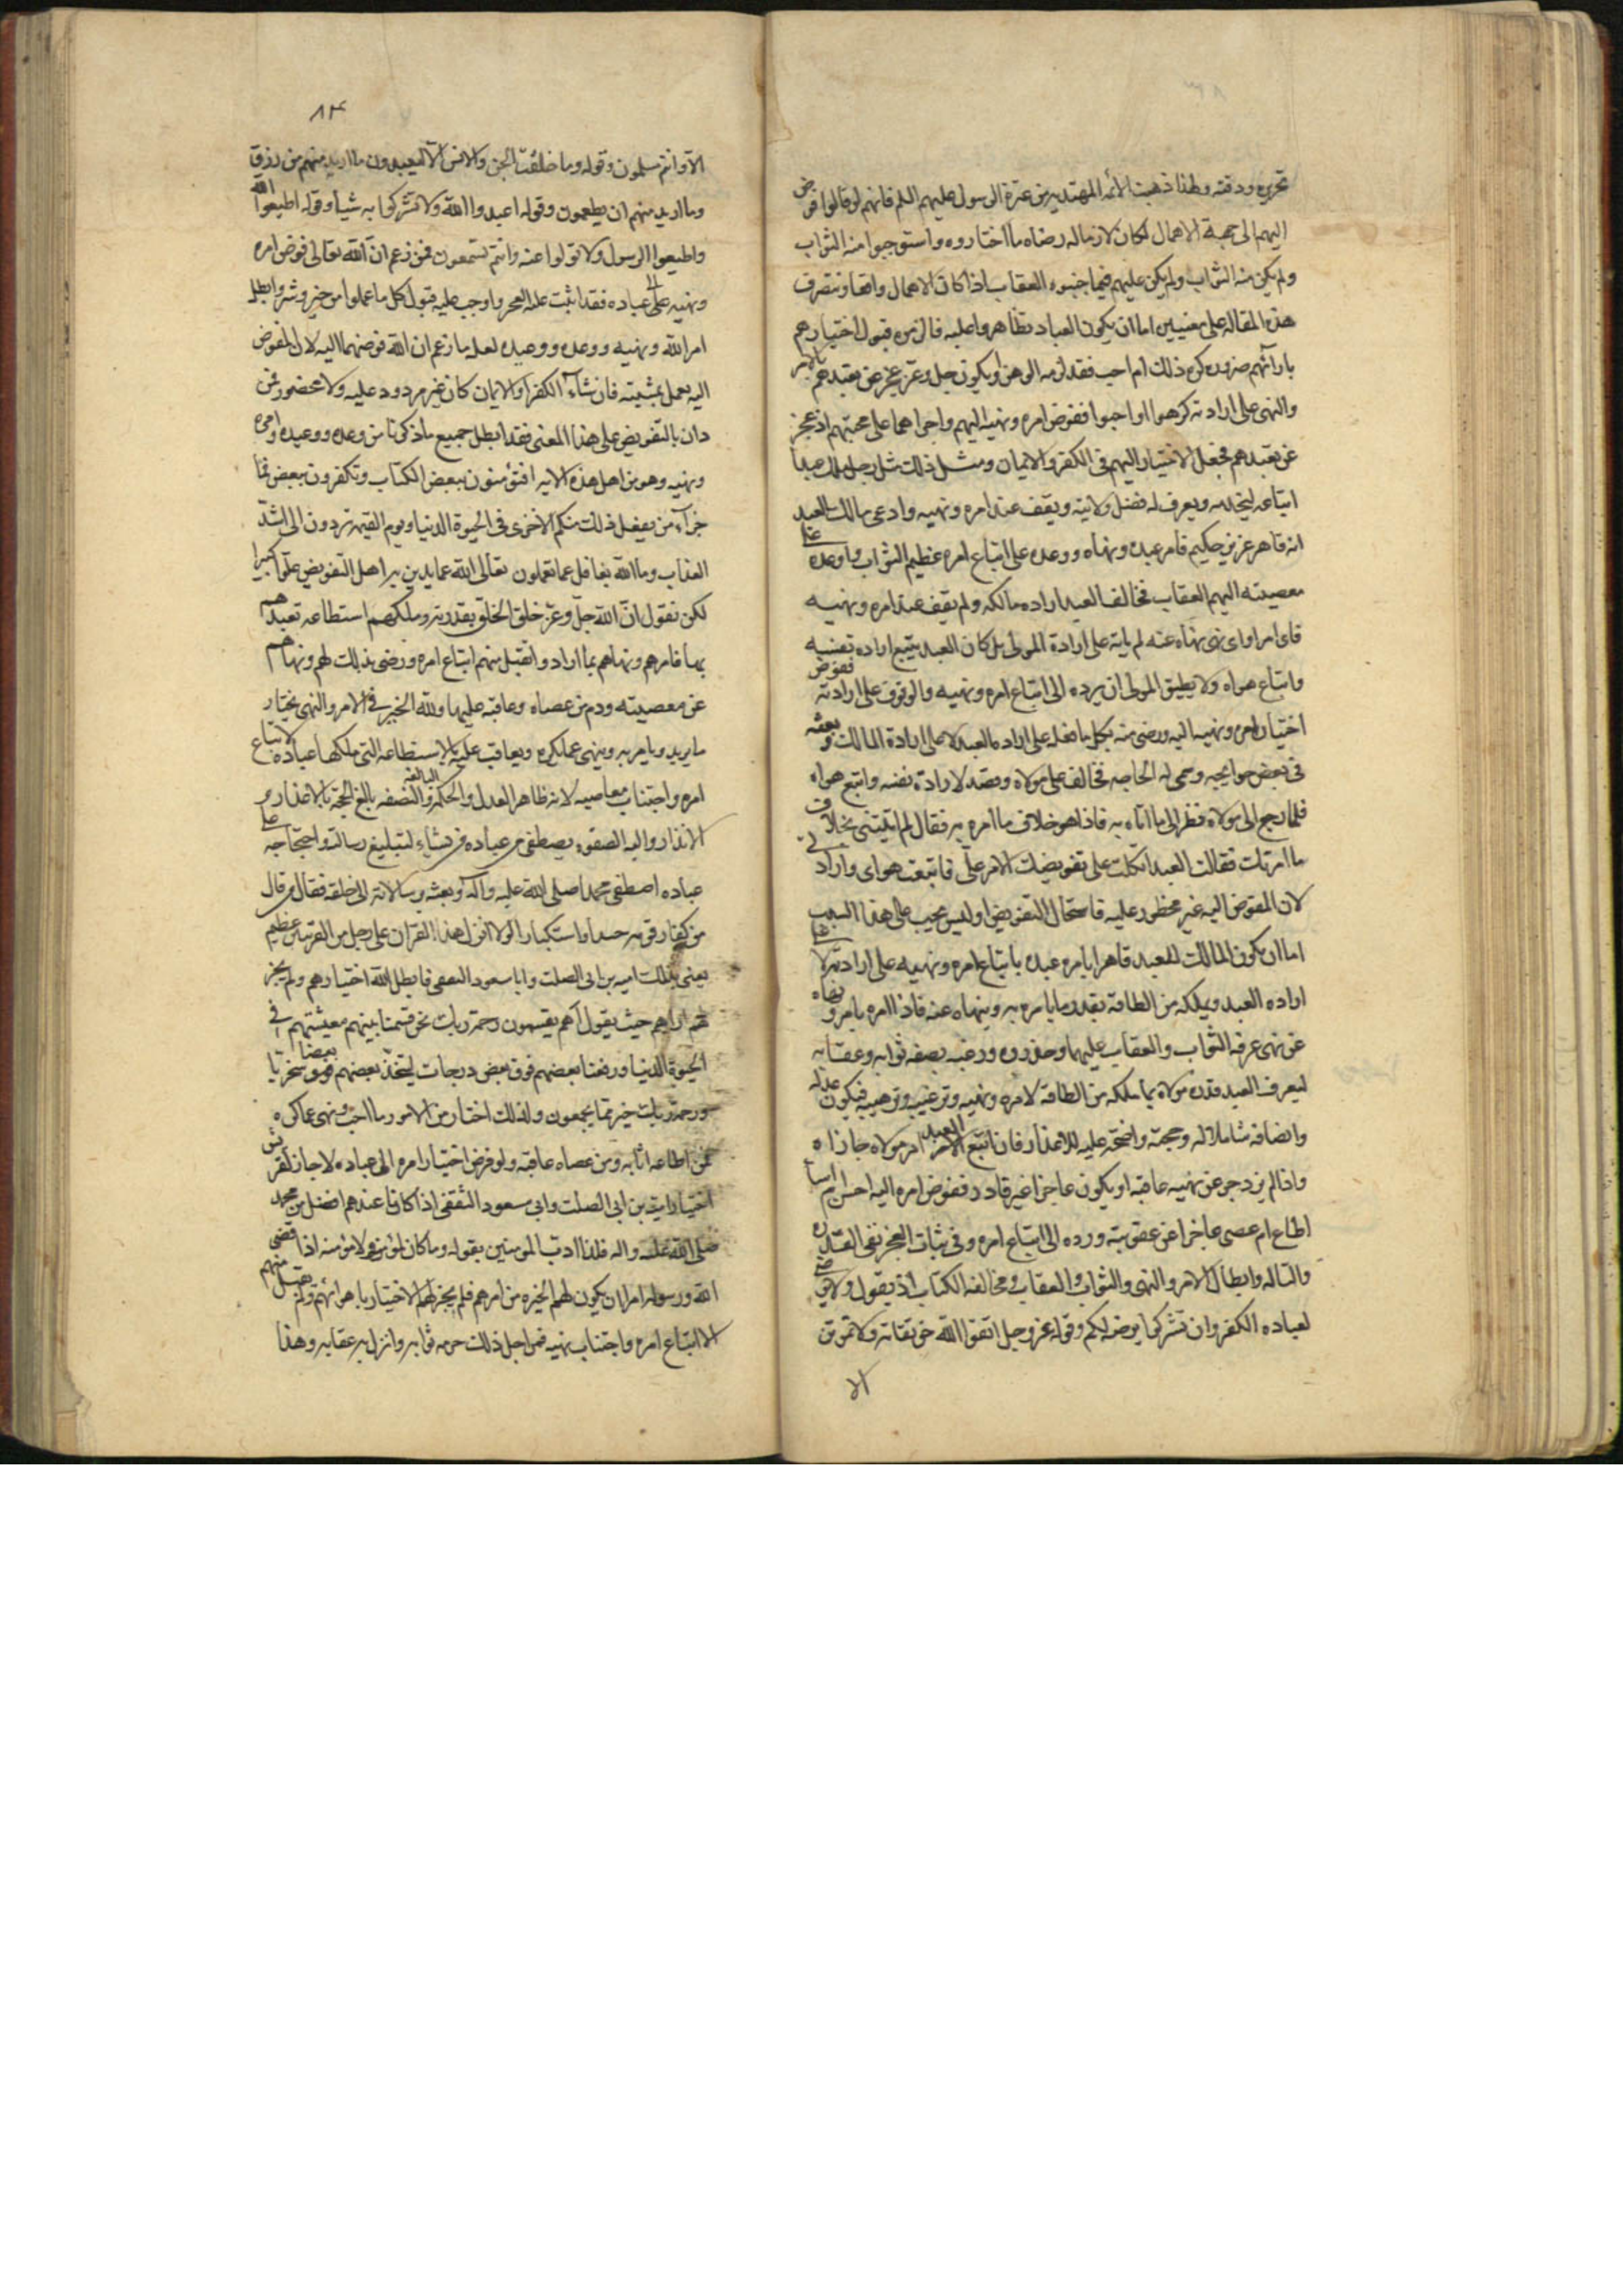 تحريره ودقته ولهذا ذهبت الائمه المهتدين من عترة الرسول عليهم السلم فانهم لو قالوا فوض
اليهم الى جهة الاهمال لكان لازما له رضاه ما اختاروه واستوجبوا منه الثواب
ولم يكن منه الثواب ولم يكن عليهم فيما جنوه العقاب اذا كان الاهمال واقعا وتنصرف
هذه المقاله على معنيين اما ان يكون العباد تظاهروا عليه فالزموه قبول اختيارهم
بارائهم ضرورة كره ذلك ام احب فقد لزمه الوهن او يكون جل وعز عجز عن تعبدهم بالامر
والنهى على ارادته كرهوا او احبوا ففوض امره ونهيه اليهم واجراهما على محبتهم اذ عجز
عن تعبدهم فجعل الاختيار اليهم فى الكفر والايمان ومثل ذلك مثل رجل ملك عبدا
ابتاعه ليخدمه ويعرف له فضل ولايته ويقف عند امره ونهيه وادعى مالك العبد
انه قاهر عزيز حكيم فامر عبده ونهاه ووعده على اتباع امره عظيم الثواب واوعده على
معصيته اليم العقاب فخالف العبد اراده مالكه ولم يقف عند امره ونهيه
فاى امر او اى نهى نهاه عنه لم ياته على ارادة المولى بل كان العبد يتبع اراده نفسه
واتباع هواه ولا يطيق المولى ان يرده الى اتباع امره ونهيه والوقوف على ارادته ففوض
اختيار امره ونهيه اليه ورضى منه بكل ما فعله على اراده العبد لا على ارادة المالك وبعثه
فى بعض حوايجه وسمى له الحاجه فخالف على مولاه وقصد لارادة نفسه واتبع هواه
فلما رجع الى مولاه نظر الى ما اتاه به فاذا هو خلاف ما امره به فقال لم اتيتنى بخلاف
ما امرتك فقال العبد اتكلت على تفويضك الامر الى فاتبعت هواى وارادتى
لان المفوض اليه غير محظور عليه فاستحال التفويض اوليس يجب على هذا السبب
اما ان يكون المالك للعبد قاهرا يامره عبده باتباع امره ونهيه على ارادته لا على
اراده العبد ويملكه من الطاقة بقدر ما يامره به وينهاه عنه فاذا امره بامر ونهاه
عن نهى عرفه الثواب والعقاب عليهما وحذره ورغبه بصفه ثوابه وعقابه
ليعرف العبد قدره مولاه بما ملكه من الطاقه لامره ونهيه وترغيبه وترهيبه فيكون عدله
وانصافه شاملا له وحجته واضحة عليه للاعذار فان اتبع العبد امر مولاه جازاه
واذا لم يزدجر عن نهيه عاقبه او يكون عاجزا غير قادر ففوض امره اليه احسن ام اسا
اطاع ام عصى عاجزا عن عقوبته ورده الى اتباع امره وفى اثبات العجز نفى القدره
والتاله وابطال الامر والنهى والثواب والعقاب ومخالفه الكتاب اذ يقول ولا يرضى
لعباده الكفر وان تشركوا يرضه لكم وقوله عز وجل اتقوا الله حق تقاته ولا تموتن
الا
٨٣
الا وانتم مسلمون وقوله وما خلقت الجن والانس الا ليعبدون ما اريد منهم من رزق
وما اريد منهم ان يطعمون وقوله اعبدوا الله ولا تشركوا به شيا وقوله اطيعوا الله
واطيعوا الرسول ولا تولوا عنه وانتم تسمعون فمن زعم ان الله تعالى فوض امره
ونهيه الى عباده فقد اثبت عليه العجز واوجب عليه قبول كل ما عملوا من خير وشر وابطل
امر الله ونهيه ووعده ووعيده لعله ما زعم ان الله فوضهما اليه لان المفوض
اليه يعمل بمشيته فان شآء الكفر او الايمان كان غير مردود عليه ولا محضور فمن
دان بالتفويض على هذا المعنى فقد ابطل جميع ما ذكرنا من وعده ووعيده وامره
ونهيه وهو من اهل هذه الايه افتؤمنون ببعض الكتاب وتكفرون ببعض فما
جزآء من يفعل ذلك منكم الا خزى فى الحيوة الدنيا ويوم القيمه تردون الى اشد
العذاب وما الله بغافل عما تعملون تعالى الله عما يدين به اهل التفويض علوا كبيرا
لكن نقول ان الله جل وعز خلق الخلق بقدرته وملكهم استطاعه تعبدهم
بها فامرهم ونهاهم بما اراد وقبل منهم اتباع امره ورضى بذلك لهم ونهاهم
عن معصيته وذم من عصاه وعاقبه عليها ولله الخيره فى الامر والنهى يختار
ما يريد ويامر به وينهى عما يكره ويعاقب عليه بالاستطاعه التى ملكها عباده لاتباع
امره واجتناب معاصيه لانه ظاهر العدل والنصفه والحكمة البالغه بالغ الحجة بالاعذار و
الانذار واليه الصفوه يصطفى من عباده من يشاء لتبليغ رسالته واحتجاجه على
عباده اصطفى محمدا صلى الله عليه وآله وبعثه برسالاته الى خلقه فقال من قال
من كفار قومه حسدا واستكبارا لولا انزل هذا القران على رجل من القريتين عظيم
يعنى بذلك اميه بن ابى الصلت وابا مسعود الثقفى فابطل الله اختيارهم ولم يجز
لهم اراهم حيث يقول أهم يقسمون رحمة ربك نحن قسمنا بينهم معيشتهم فى
الحيوة الدنيا ورفعنا بعضهم فوق بعض درجات ليتخذ بعضهم بعضا سخريا
ورحمة ربك خير مما يجمعون ولذلك اختار من الامور ما احب ونهى عما كره
فمن اطاعه اثابه ومن عصاه عاقبه ولو فوض اختيار امره الى عباده لاجاز لقريش
اختيار اميه بن ابى الصلت وابى مسعود الثقفى اذ كانا عندهم افضل من محمد
صلى الله عليه واله فلما ادب المومنين بقوله وما كان لمؤمن ولا مؤمنه اذا قضى
الله ورسوله امرا ان يكون لهم الخيره من امرهم فلم يجز لهم الاختيار باهوائهم ولم يقبل منهم
الا اتباع امره واجتناب نهيه فمن اجل ذلك حرمه ثوابه وانزل به عقابه وهذا